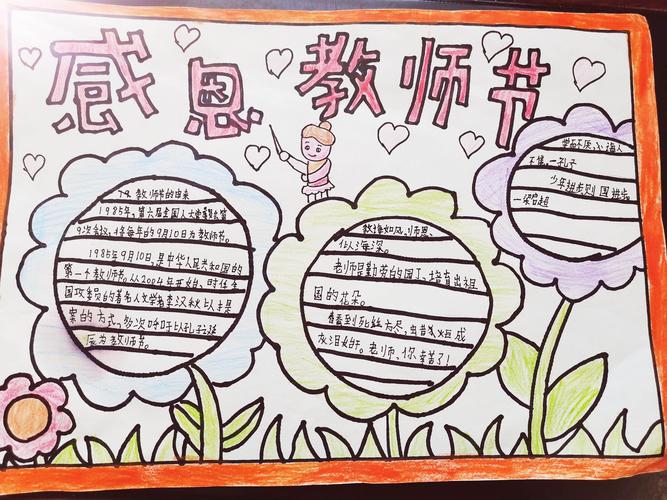 感恩教师节
教师节的由来
1985年,第六届全国人大常
9次会议,将每年的9月10日为教师节。
1985年9月10日,是中华人民共和国的
第一个教师节。从2004年开始,时任全
国政委员的著名人文学者李汉秋以提
案的方式,多次呼吁以孔诞
辰为教师节。
教诲如风,师恩
似海深。
老师是勤劳的园丁,培育出祖
国的花朵。
春蚕到死丝方尽,蜡炬成
灰泪始干。老师,你辛苦了!
学而不厌,诲人
不倦。一孔子
少年进步则国进步。
一梁启超